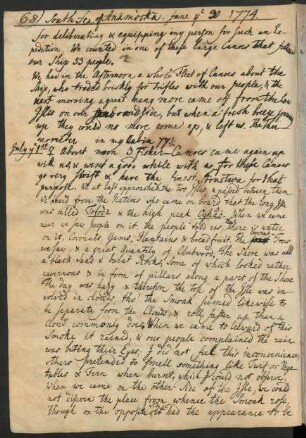 68 South Sea Anamocka. June ye 30 1774
for deliberating & equipping any person for such an Ex-
pedition. We counted in one of these large Canoes that follow'd
our Ship 53 people.
We had in the Afternoon a whole Fleet of Canoes about the
Ship, who traded briskly for trifles with our people, & the
next morning a great many more came off from the low
Isles on our side, but when a fresh breeze sprung
up they could no more come up, & left us. The
in my cabin 77°
July ye 1st About noon 3 Canoes came again up
with us, & went a good while with us, for these Canoes
go very swift & have the best structure for that
purpose. We at last approached the two Isles, where
we heard from the Natives who came on board that the long Isle
was called & the high peak. When we came
near we saw people on it the people told us there is water
on it, Coconuts, Yams, Plantains & breadfruit, the Trees
we saw & a great quantity of Clubwood. The Shore was all
a black sand & burnt Rocks, some of which looked rather
cavernous & in form of pillars along a part of the Shore
the day was hazy & therefore the top of the Isle was in-
volved in clouds the Smoak seemed likewise to
be separate from the Clouds & roll faster up than a
cloud commonly does. When we came to leeward of this
Smoke it rained, & our people complained the rain
was biting their Eyes, I did not feel this inconveniency
others pretended to smell something like Turf or Vege-
tables & Fern when burnt, which I could not observe.
When we came on the other Side of the Isle, we could
not discern the place from whence the Smoak rose,
though on the opposite Side had the appearance to be